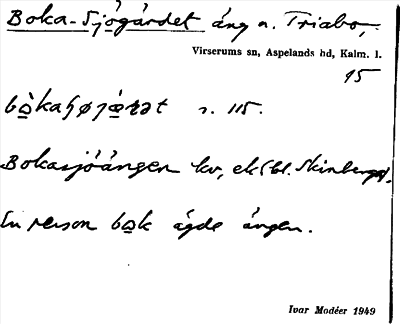 Boka-Sjögärdet äng n. Triabo,
Virserums sn, Aspelands hd, Kalm. l.
s. 115.
Bokasjöängen kv, ek (bl.
En person bok ägde ängen.
Ivar Modéer 1949